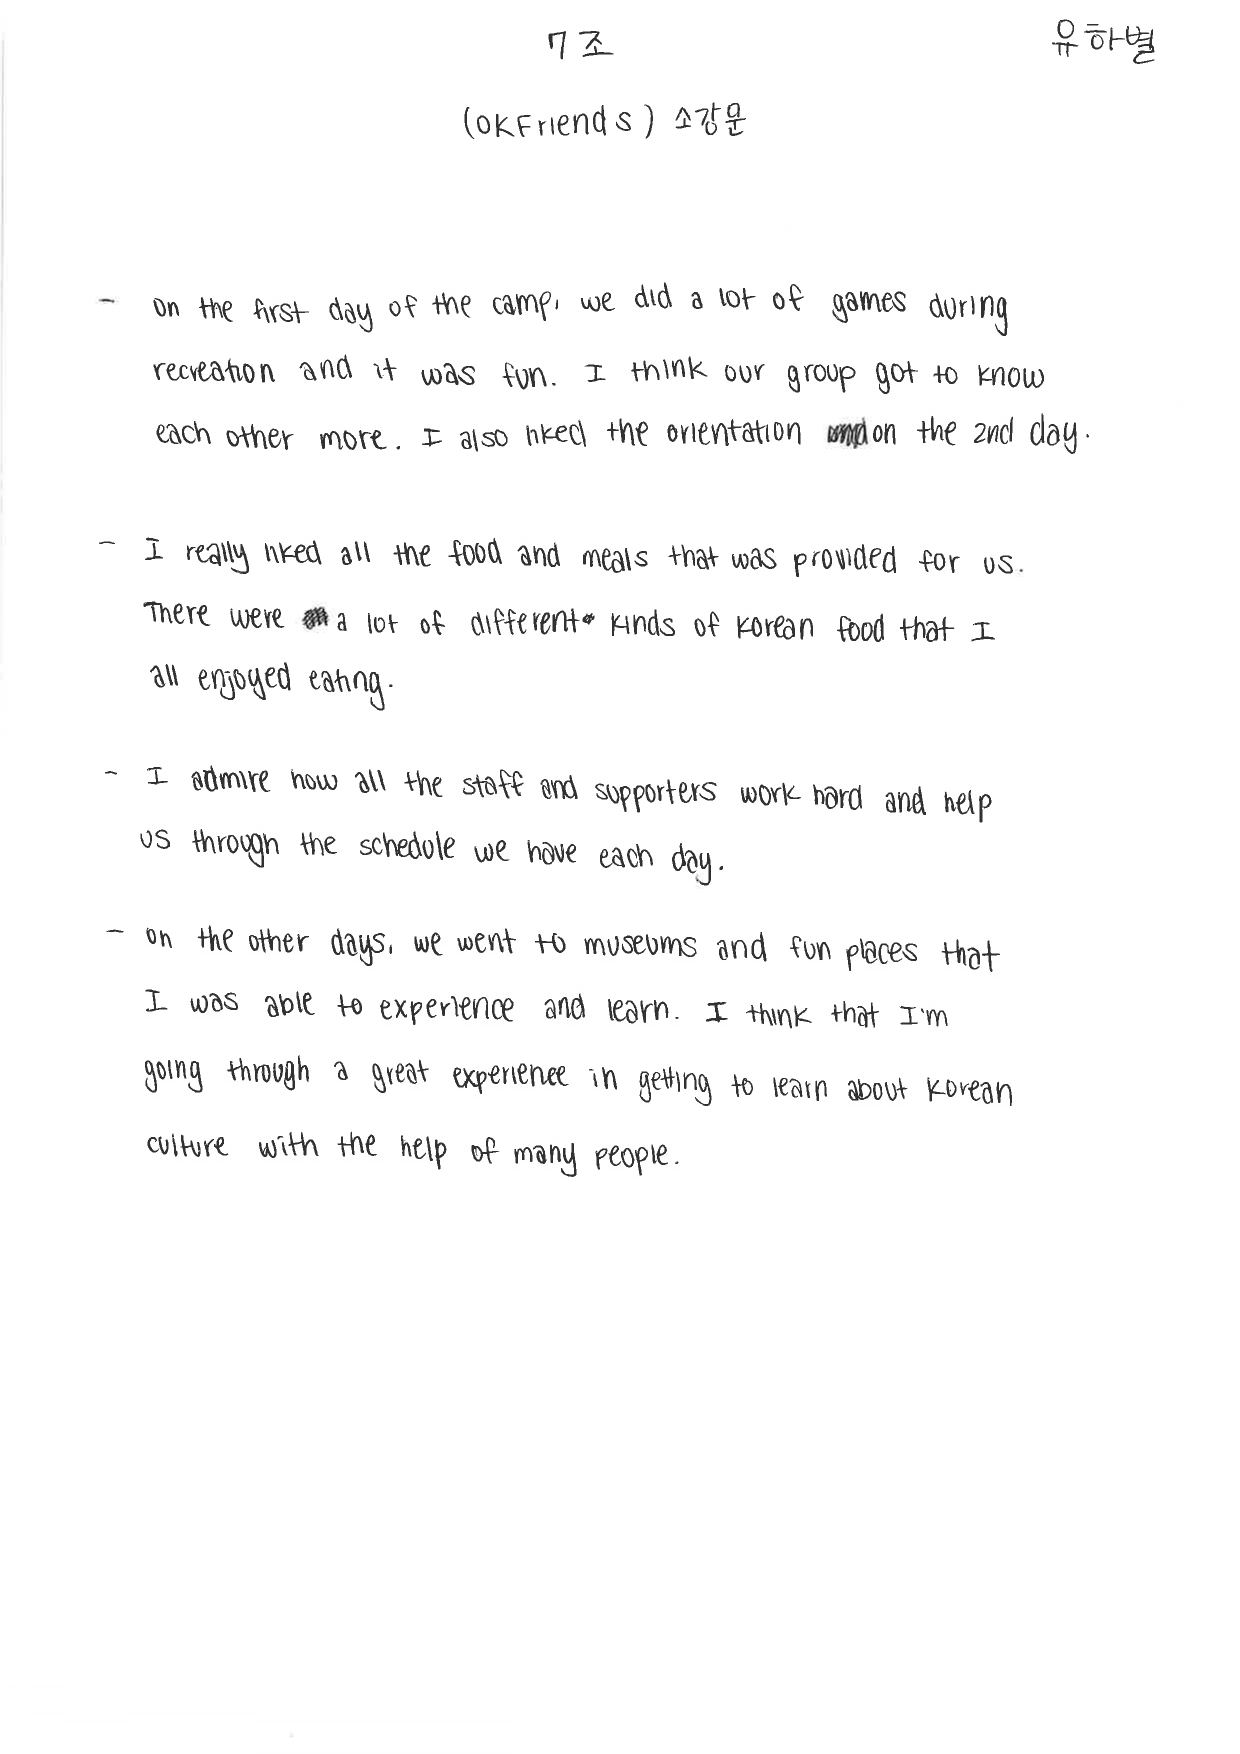 7조
유하별
(OKFriends) 소강문
- On the first day of the camp, we did a lot of games during
recreation and it was fun. I think our group got to know
each other more. I also liked the orientation on the 2nd day.
- I really liked all the food and meals that was provided for us.
There were a lot of different kinds of Korean food that I
all enjoyed eating.
- I admire how all the staff and supporters work hard and help
us through the schedule we have each day.
- On the other days, we went to museums and fun places that
I was able to experience and learn. I think that I'm
going through a great experience in getting to learn about Korean
culture with the help of many people.